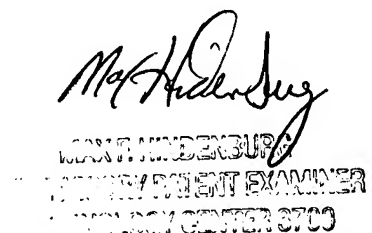 Max Hindenburg
MAX F. HINDENBURG
PATENT EXAMINER
TECHNOLOGY CENTER 3700